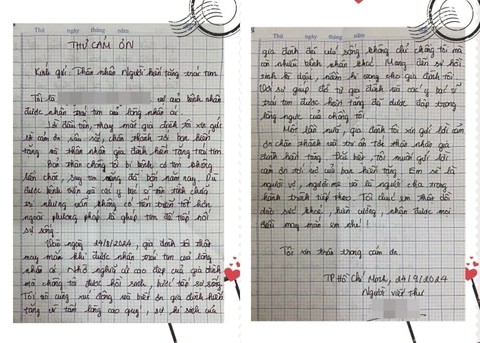 Thứ ngày tháng năm
THƯ CẢM ƠN
Kính gửi: Thân nhân người hiến tặng trái tim
Tôi là vợ của bệnh nhân
được nhận trái tim của lòng nhân ái.
Lời đầu tiên, thay mặt gia đình tôi xin gửi
lời cảm ơn sâu sắc, chân thành tới bạn hiến
tặng và thân nhân gia đình hiến tặng trái tim.
Bản thân chồng tôi bị bệnh cơ tim không
chất, suy tim nặng đã bốn năm nay. Dù
được bệnh viện và các y bác sĩ tận tình
trị nhưng vẫn không có tiến triển tốt hơn
ngoài phương pháp là ghép tim để tiếp nối
sự sống.
Vào ngày 24/8/2024, gia đình tôi thật
may mắn khi được nhận trái tim của lòng
nhân ái. Nhờ nghĩa cử cao đẹp của gia đình
mà chồng tôi được hồi sinh, bước tiếp sự sống.
Tôi vô cùng xúc động và biết ơn gia đình hiến
tặng vì tấm lòng cao quý, sự hi sinh của
Thứ ngày tháng năm
gia đình đã cứu sống không chỉ chồng tôi mà
còn nhiều bệnh nhân khác. Mang đến sự hồi
sinh kì diệu, niềm hi vọng cho gia đình tôi.
Với sự giúp đỡ từ gia đình và các y bác sĩ
trái tim được hiến tặng đã được đập trong
lồng ngực của chồng tôi.
Một lần nữa, gia đình tôi xin gửi lời cảm
ơn chân thành và tri ân tới thân nhân gia
đình hiến tặng. Đặc biệt, tôi muốn gửi lời
cảm ơn tới vợ của bạn hiến tặng. Em sẽ là
người vợ, người mẹ và là người cha trong
hành trình tiếp theo. Tôi chúc em thật dồi
dào sức khoẻ, kiên cường, nhận được mọi
điều may mắn em nhé!
Tôi xin trân trọng cảm ơn.
TP Hồ Chí Minh, 24/9/2024
Người viết thư